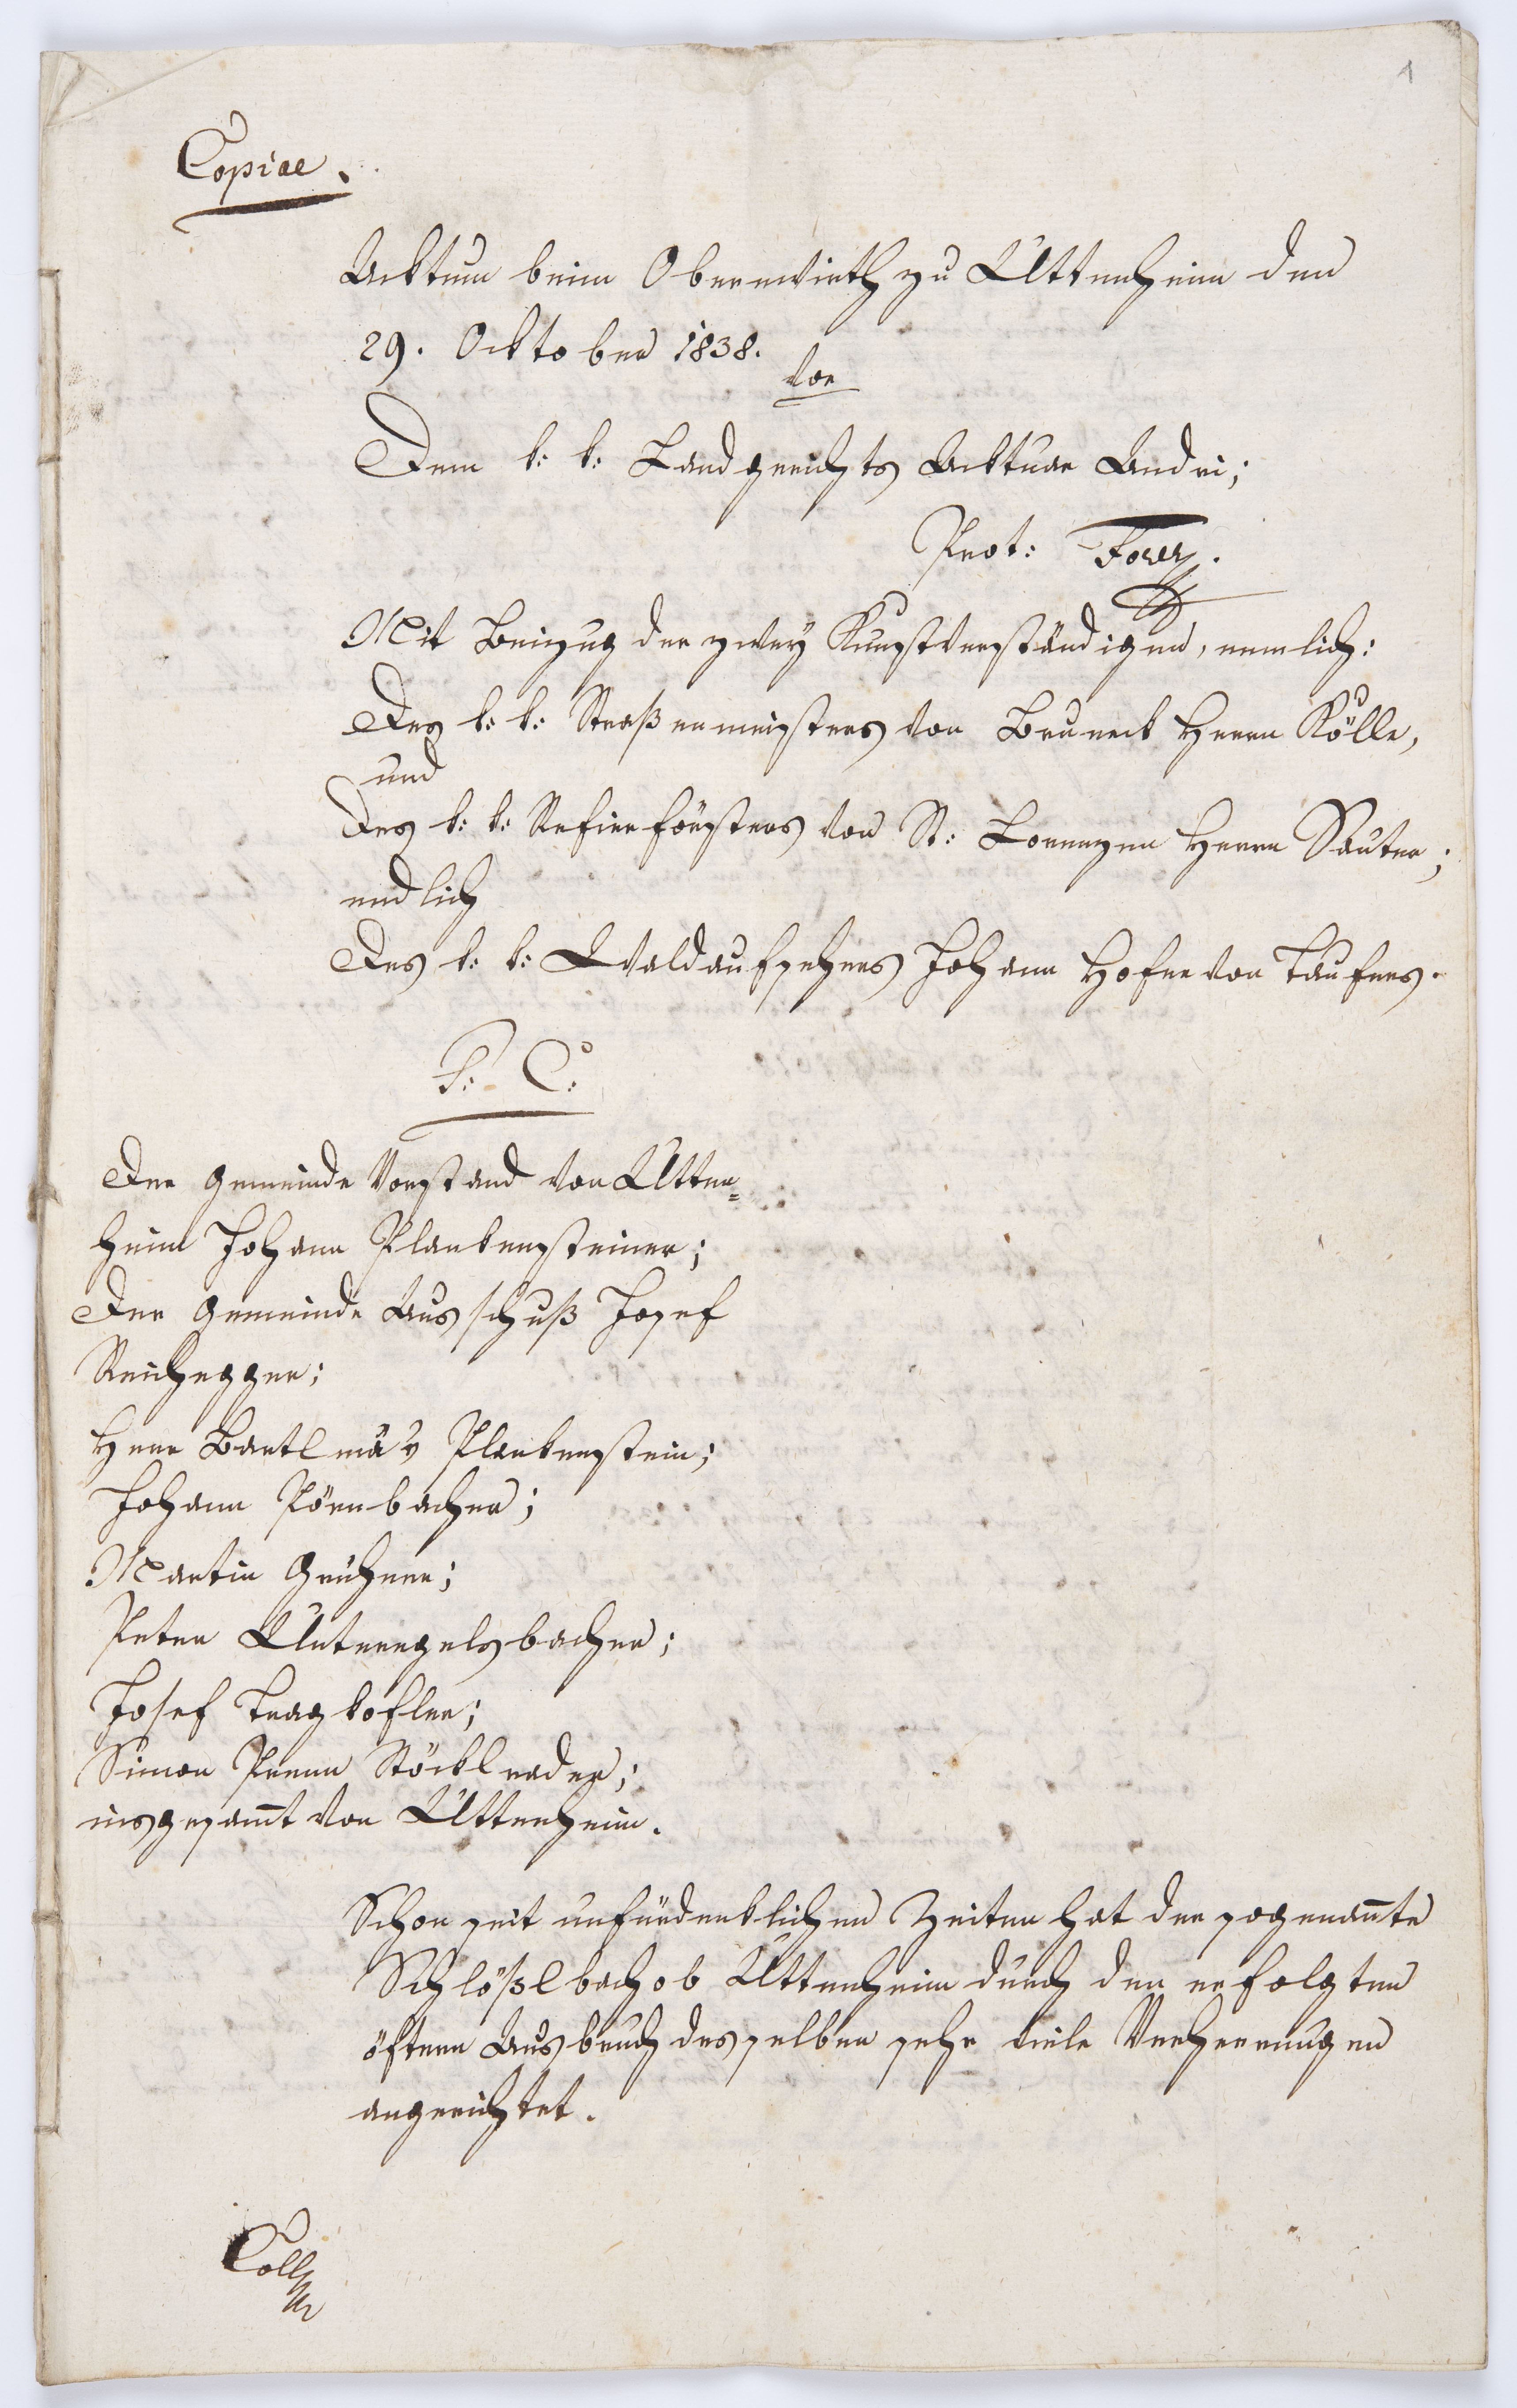 1
Copiae.
Acktum beim Oberwirth zu Uttenheim den
29. Ocktober 1838.
vor
Dem k: k: Landgerichts Acktuar Andri;
Prot: Forer.
Mit Beizug der zwey Kunstverständigen, nemlich:
Des k: k: Straßenmeisters von Bruneck Herrn Kölle,
und
Des k: k: Refierförsters von St: Lorenzen Herrn Sauter;
endlich
Des k: k: Waldaufsehers Johann Hofer von Taufers.
P: C:
Der Gemeinde Vorstand von Utten=
heim Johann Plankensteiner;
Der Gemeinde Ausschuß Josef
Reichegger;
Herr Bartlmä v Plankenstein;
Johann Pörnbacher;
Martin Gruber;
Peter Unterngelsbacher;
Josef Tragkofler;
Simon Prenn Stöcklrader;
insgesam̄t von Uttenheim.
Schon seit unfürdenklichen Zeiten hat der sogenan̄te
Schlößlbach ob Uttenheim durch den erfolgten
öftern Ausbruch desselben sehr viele Verheerungen
angerichtet.
Coll